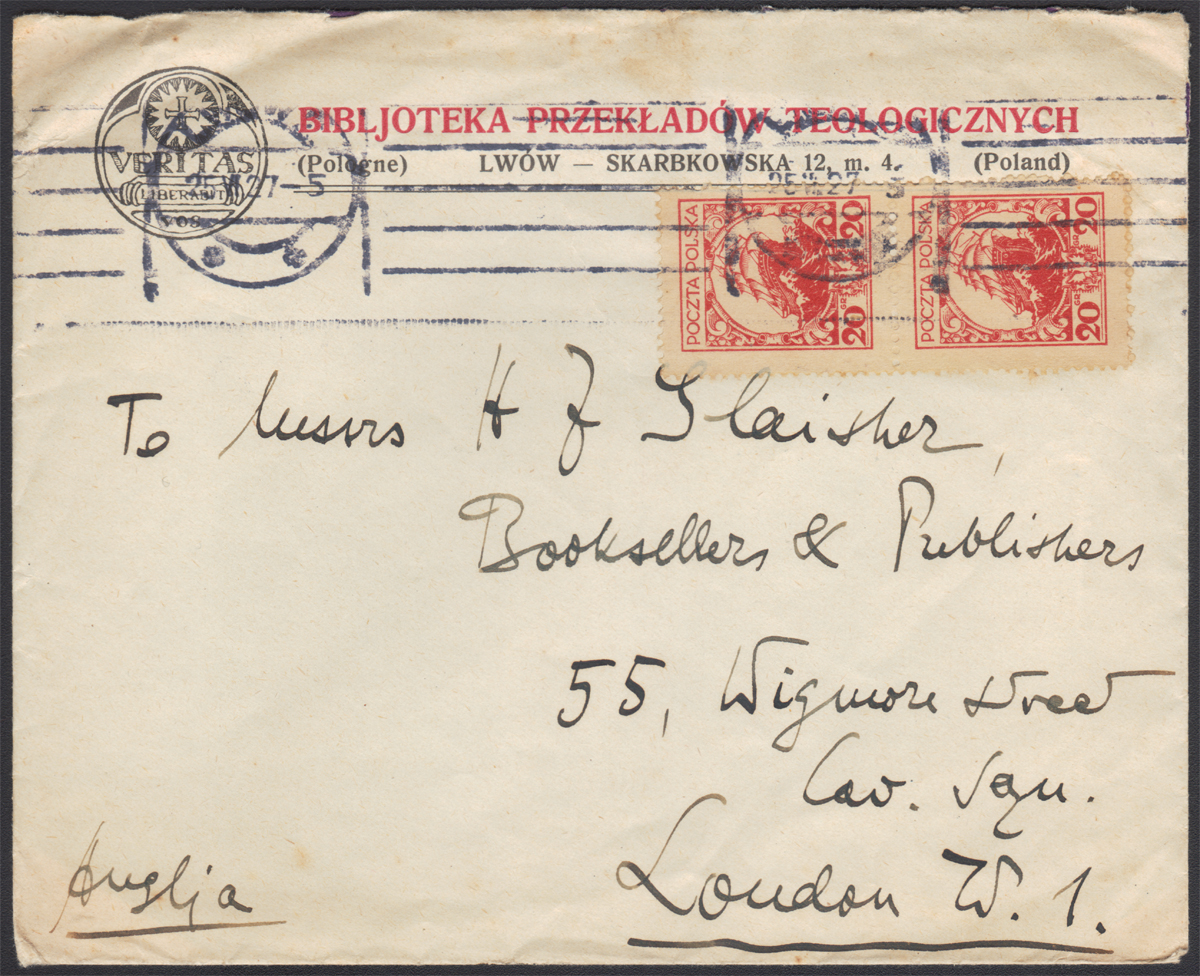 BIBLJOTEKA PRZEKŁADÓW TEOLOGICZNYCH
(Pologne) LWÓW — SKARBKOWSKA 12, m. 4. (Poland)
VERITAS
LIBERABIT
VOS
27-5
25 VI. 27
POCZTA POLSKA
20 GR. 20
POCZTA POLSKA
20 GR. 20
To Messrs H J Glaisher,
Booksellers & Publishers
55, Wigmore street
Cav. Squ.
London W. 1.
Anglja